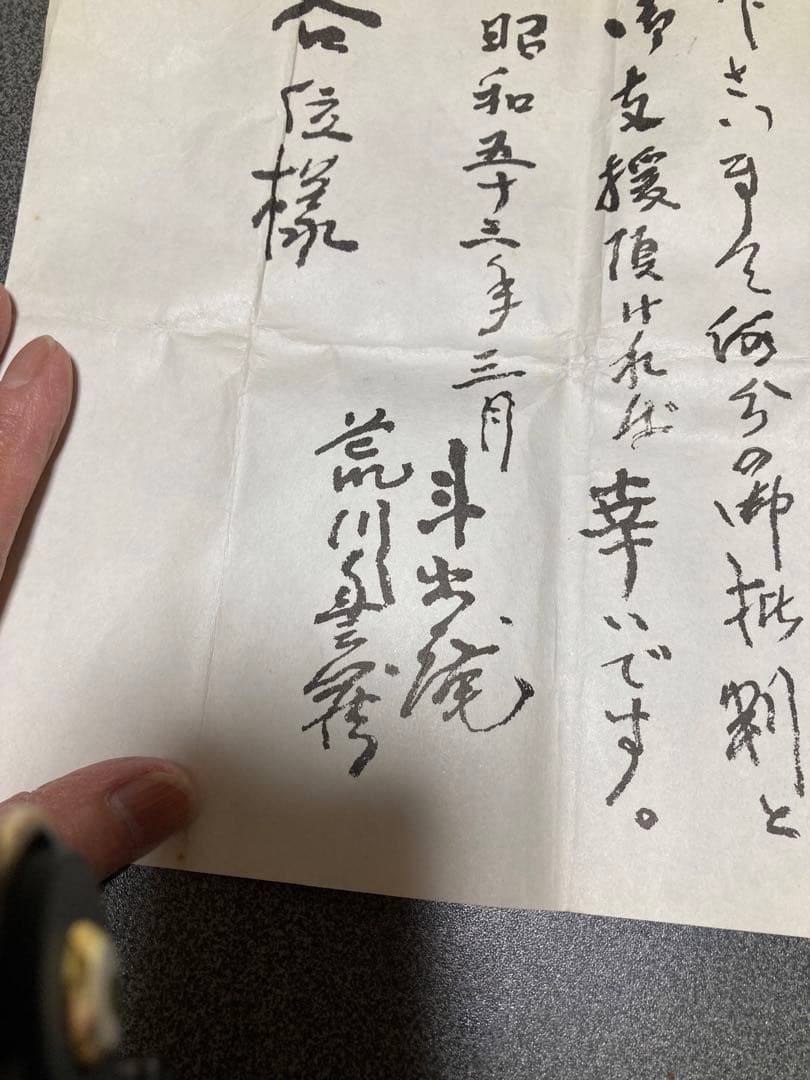 下さいますて何分の御批判と
御支援頂ければ幸いです。
昭和五十三年三月
斗出庵
荒川
各位様